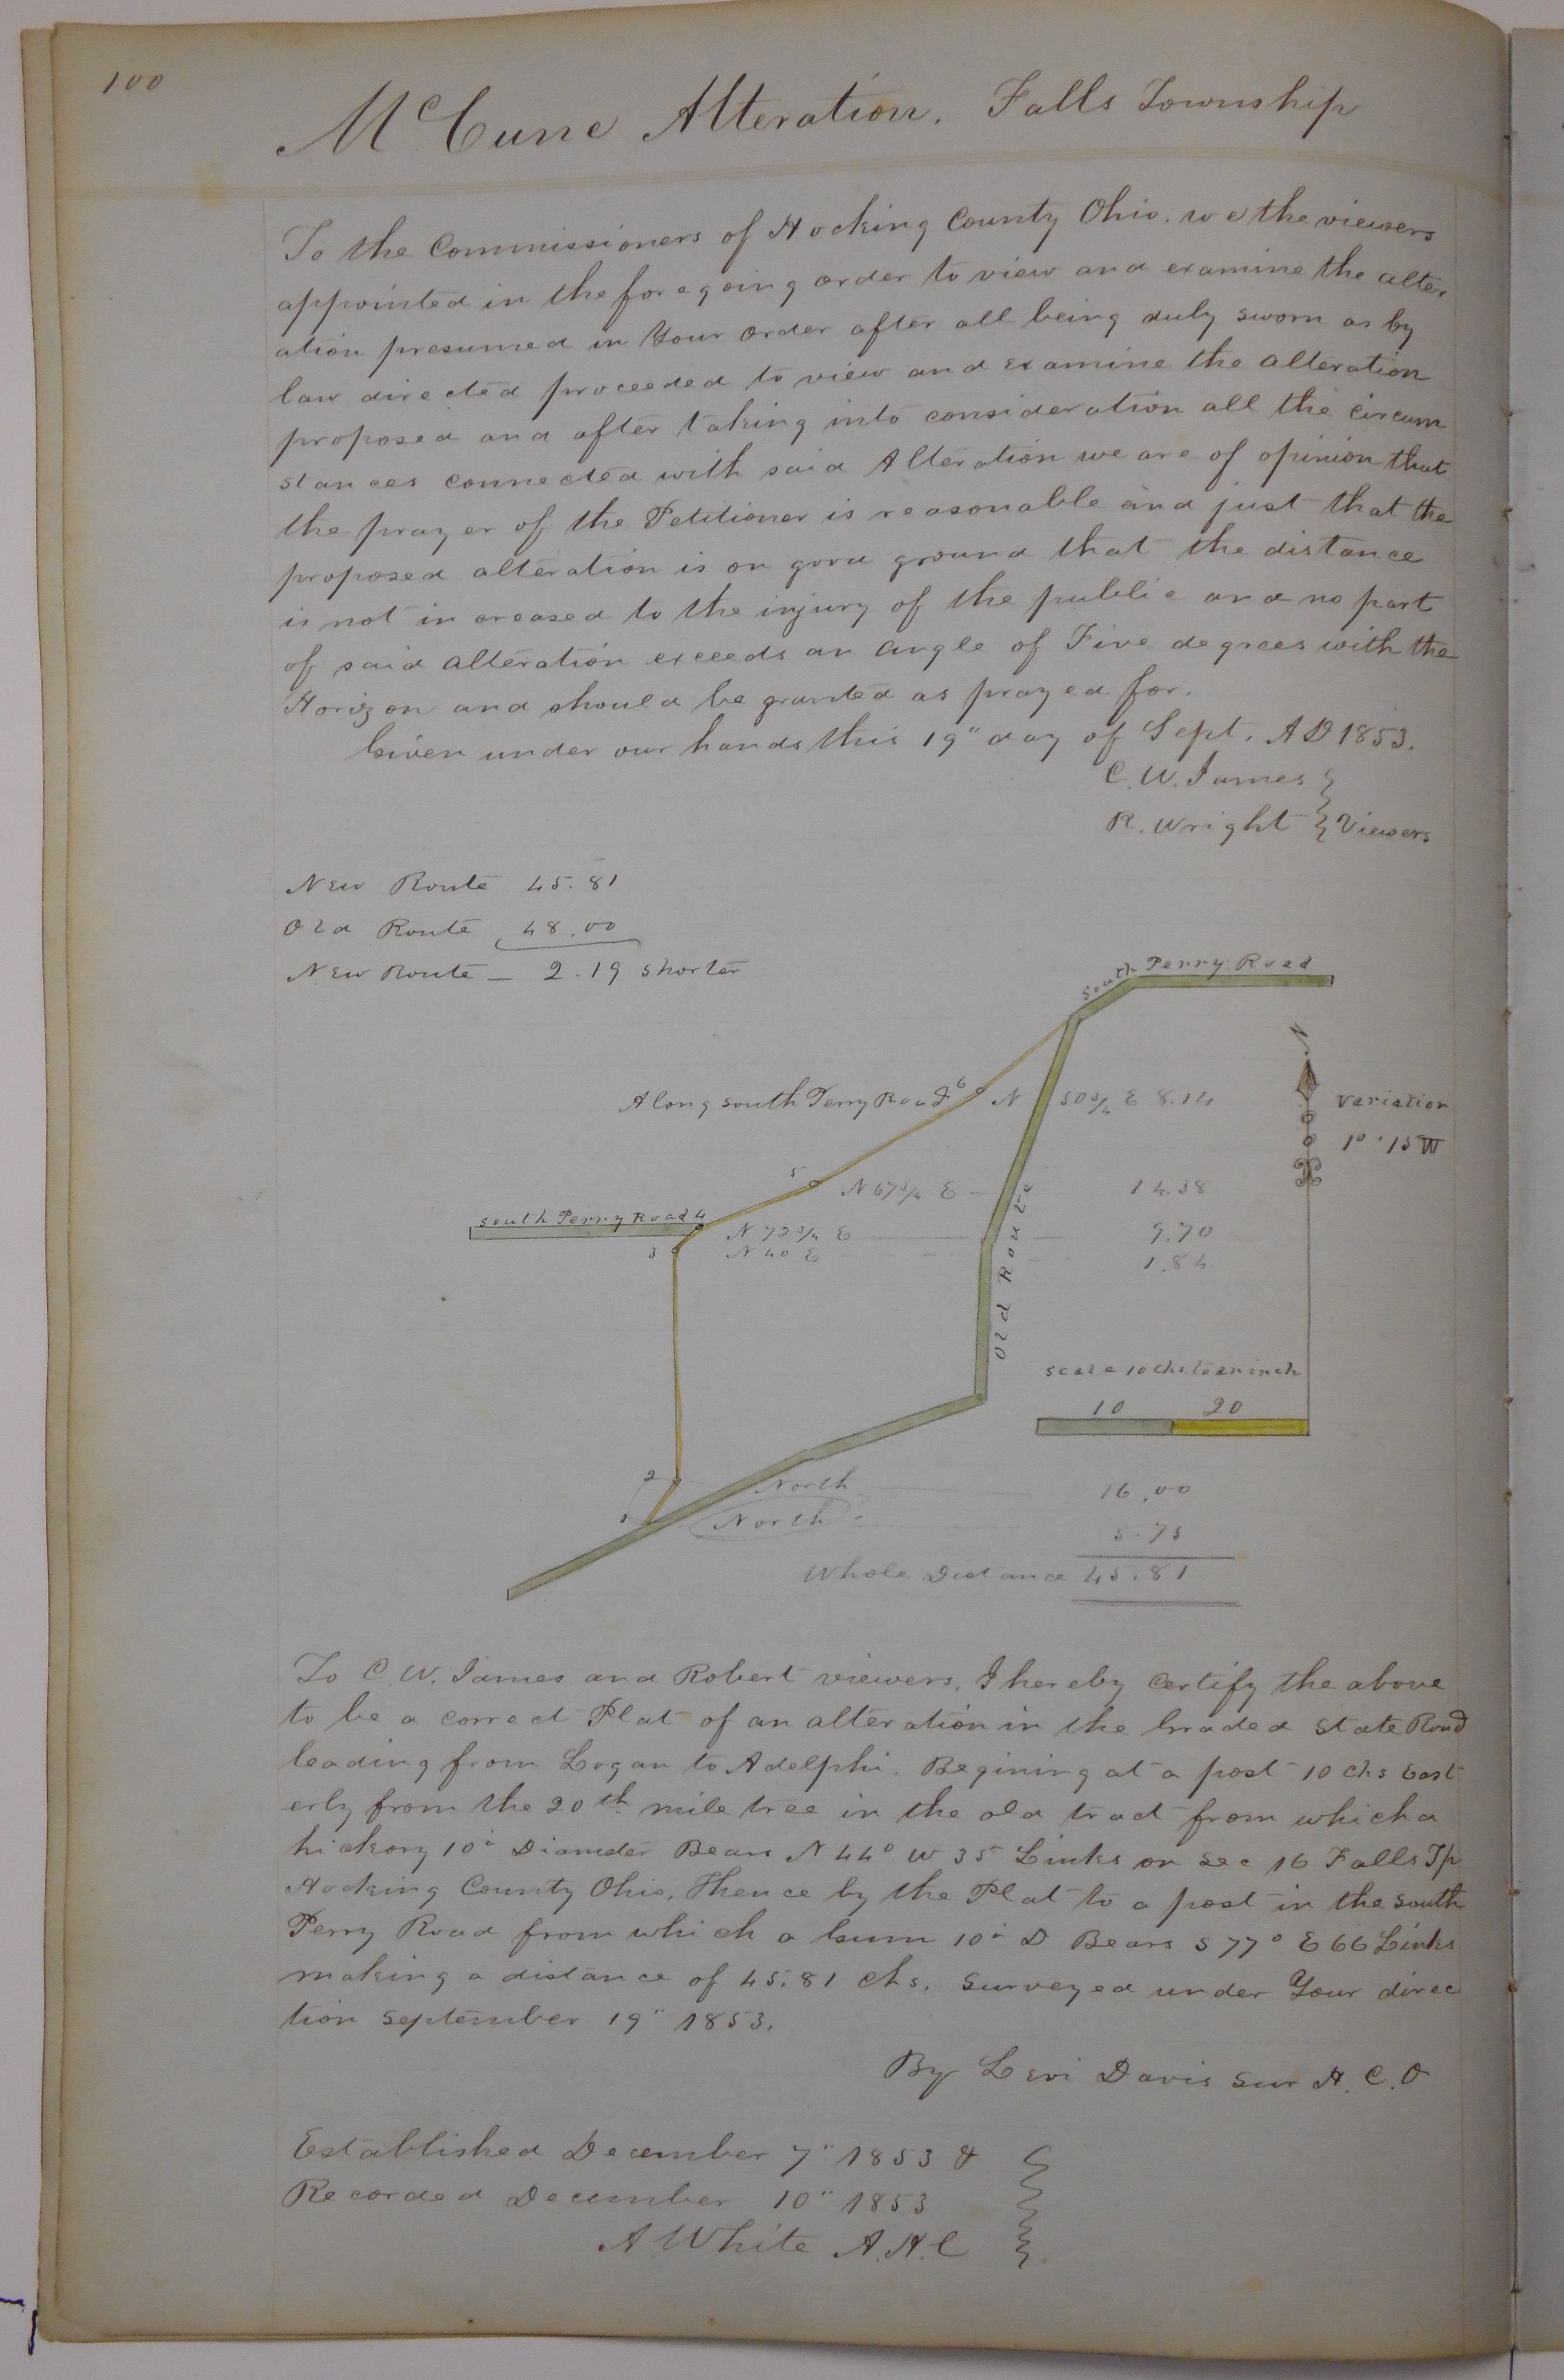 100
McCune Alteration. Falls Township
To the Commissioners of Hocking County Ohio. we the viewers
appointed in the foregoing order to view and examine the alter
ation presumed in Your order after all being duly sworn as by
law directed proceeded to view and examine the alteration
proposed and after taking into consideration all the circum
stances connected with said Alteration we are of opinion that
the prayer of the Petitioner is reasonable and just that the
proposed alteration is on good ground that the distance
is not increased to the injury of the public and no part
of said alteration exceeds an angle of Five degrees with the
Horizon and should be granted as prayed for.
Given under our hands this 19" day of Sept. A D 1853.
C. W. James
R. Wright } Viewers
New Route 45.81
Old Route 48.00
New Route — 2.19 shorter
South Perry Road
N
Along south Perry Road 6 N 50 3/4 E 8.14
variation
1° 15 W
5 N 67 3/4 E — 14.38
south Perry Road 4
N 72 3/4 E 9.70
3 N 40 E 1.84
Old Route
scale 10 chs. to an inch
10 20
2 North 16.00
North 5.75
Whole Distance 45.81
To C. W. James and Robert viewers. I hereby certify the above
to be a correct Plat of an alteration in the Graded State Road
leading from Logan to Adelphi. Begining at a post 10 chs East
erly from the 20th mile tree in the old tract from which a
hickory 10" Diameter Bears N 44° W 35 Links on Sec 16 Falls Tp
Hocking County Ohio, Thence by the Plat to a post in the south
Perry Road from which a Gum 10" D Bears S 77° E 66 Links
making a distance of 45.81 chs. Surveyed under Your direc
tion September 19" 1853.
By Levi Davis Sur H. C. O
Established December 7" 1853 &
Recorded December 10" 1853
A White A.H.C